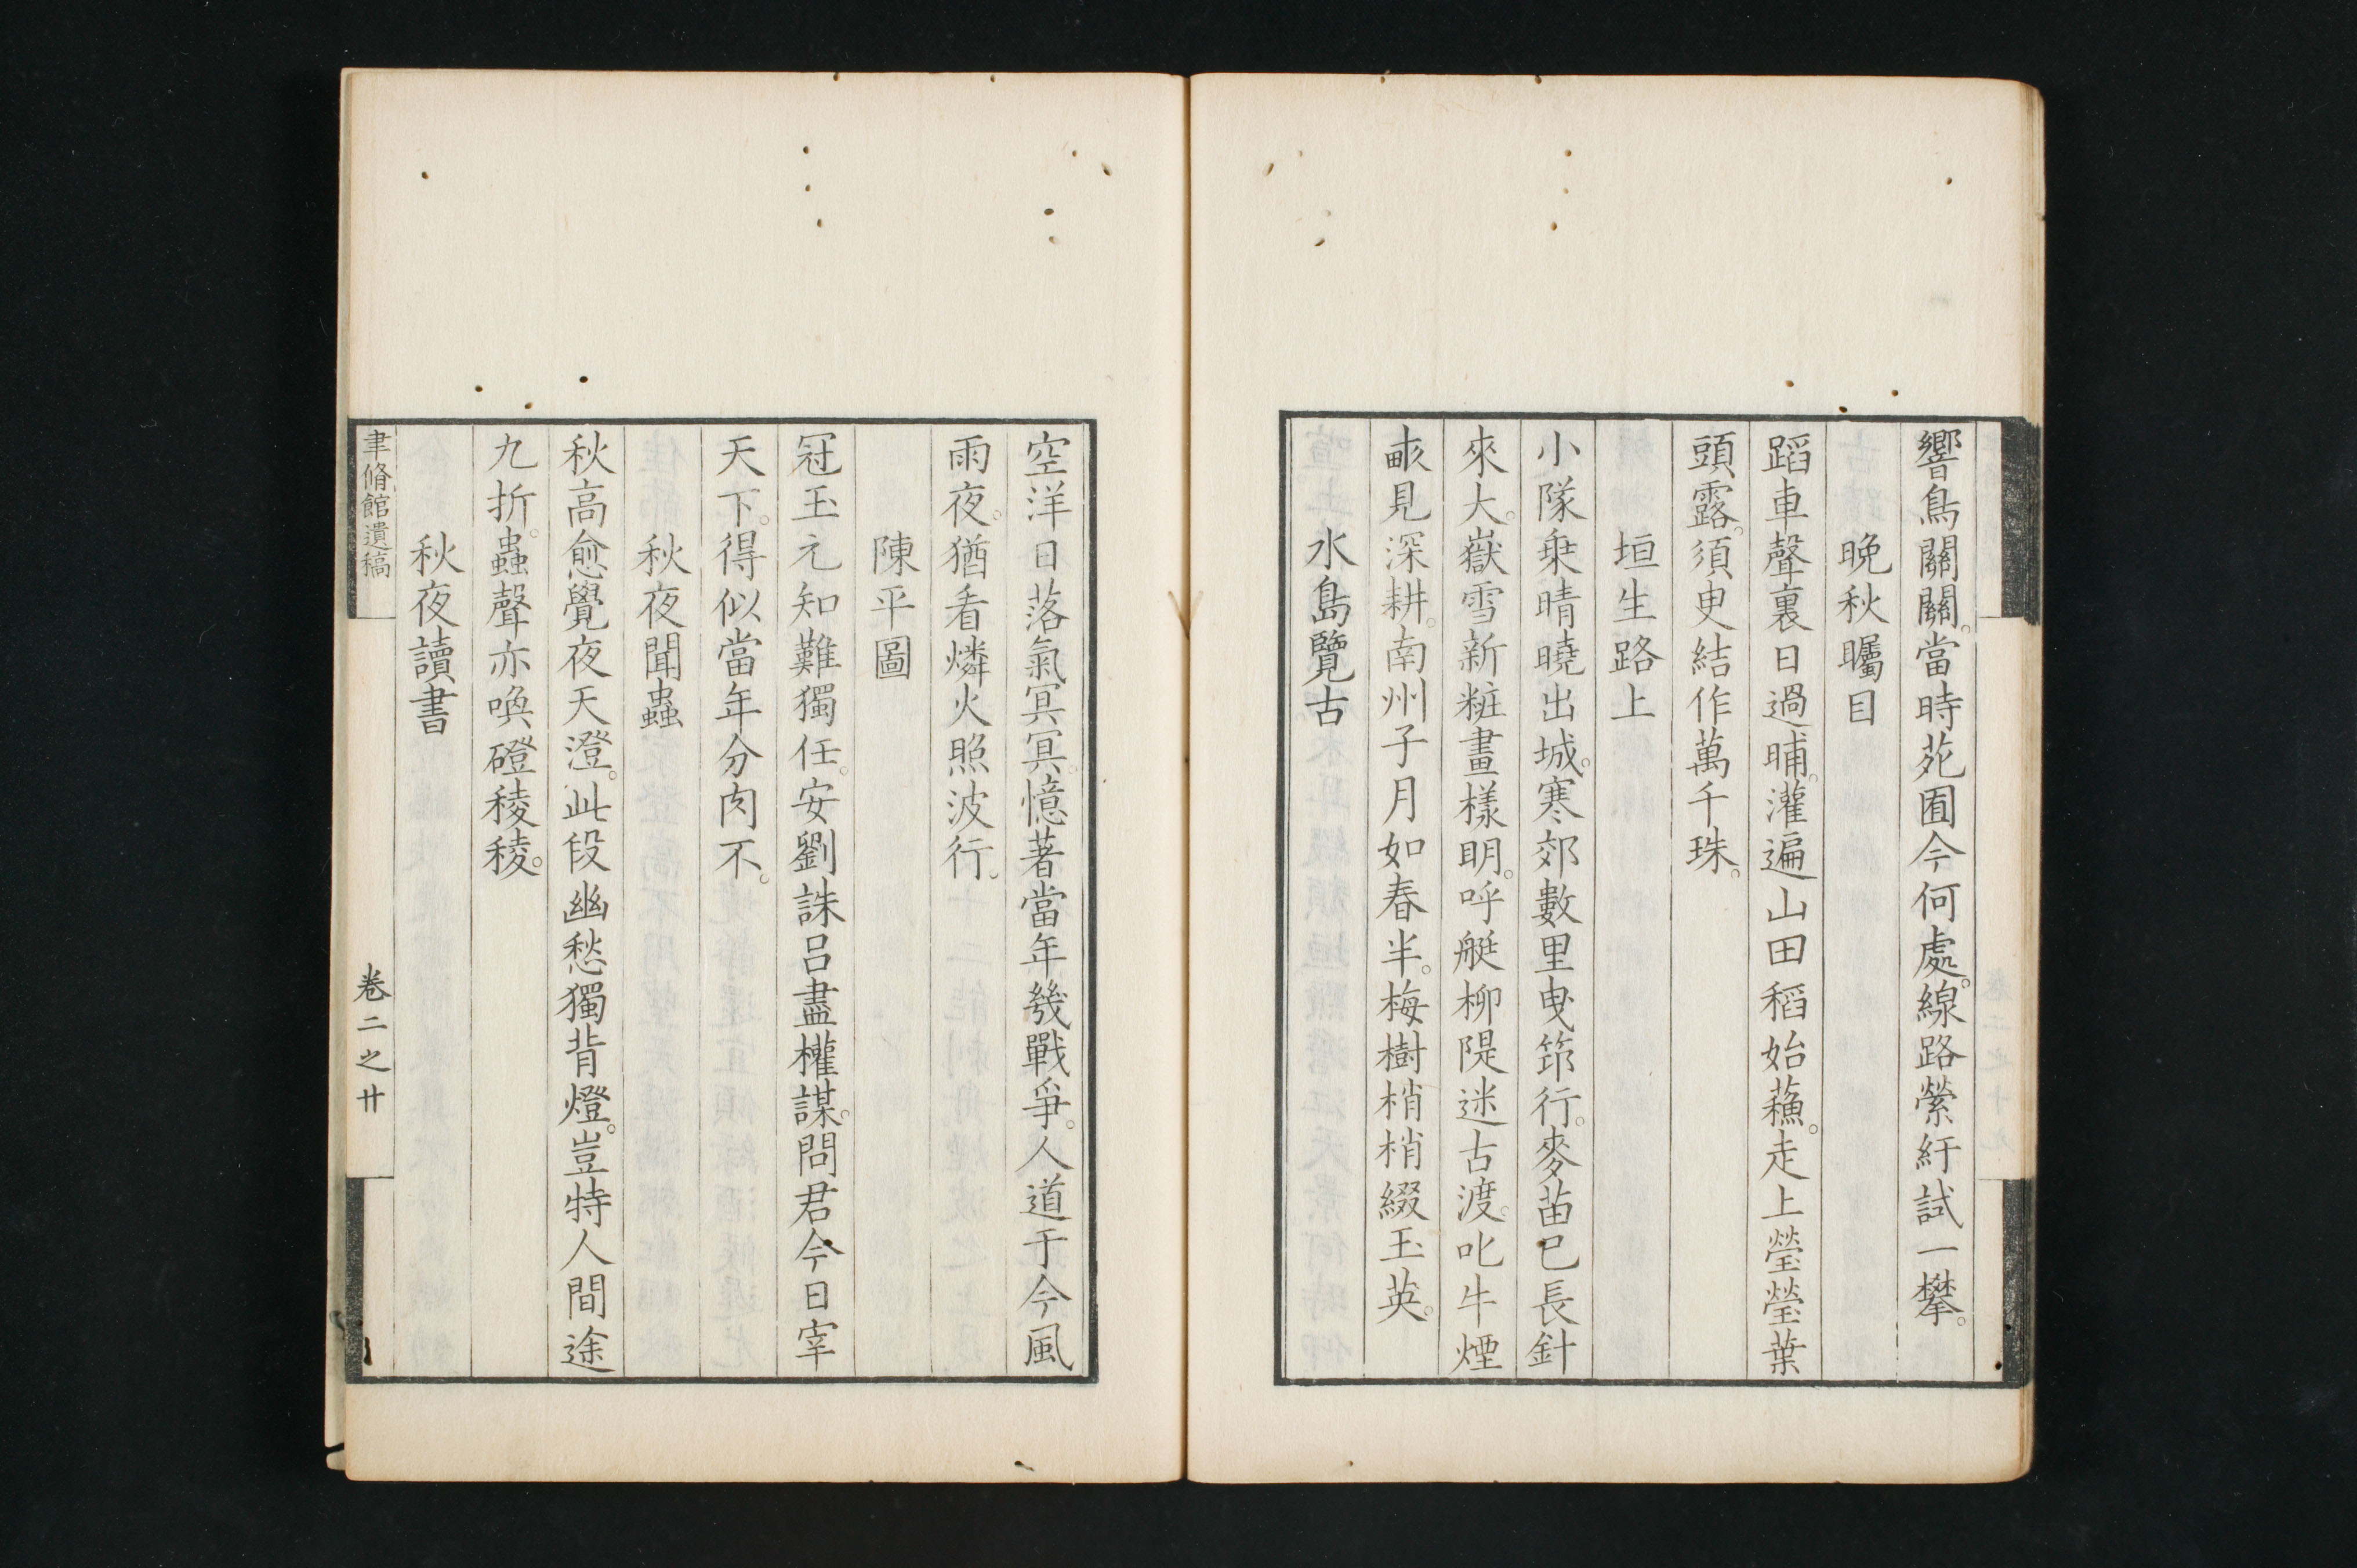 響鳥關關。當時苑囿今何處。線路縈紆試一攀。
晩秋矚目
蹈車聲裏日過晡。灌遍山田稻始蘓。走上瑩瑩葉
頭露。須臾結作萬千珠。
垣生路上
小隊乗晴曉出城。寒郊數里曳筇行。麥苗已長針
來大。嶽雪新粧畫樣明。呼艇柳隄迷古渡。叱牛煙
畞見深耕。南州子月如春半。梅樹梢梢綴玉英。
水島覽古
空洋日落氣冥冥。憶著當年幾戰爭。人道于今風
雨夜。猶看燐火照波行。
陳平圖
冠玉元知難獨任。安劉誅呂盡權謀。問君今日宰
天下。得似當年分肉不。
秋夜聞蟲
秋高愈覺夜天澄。此段幽愁獨背燈。豈特人間途
九折。蟲聲亦喚磴稜稜。
秋夜讀書
聿脩館遺稿
卷二之廿